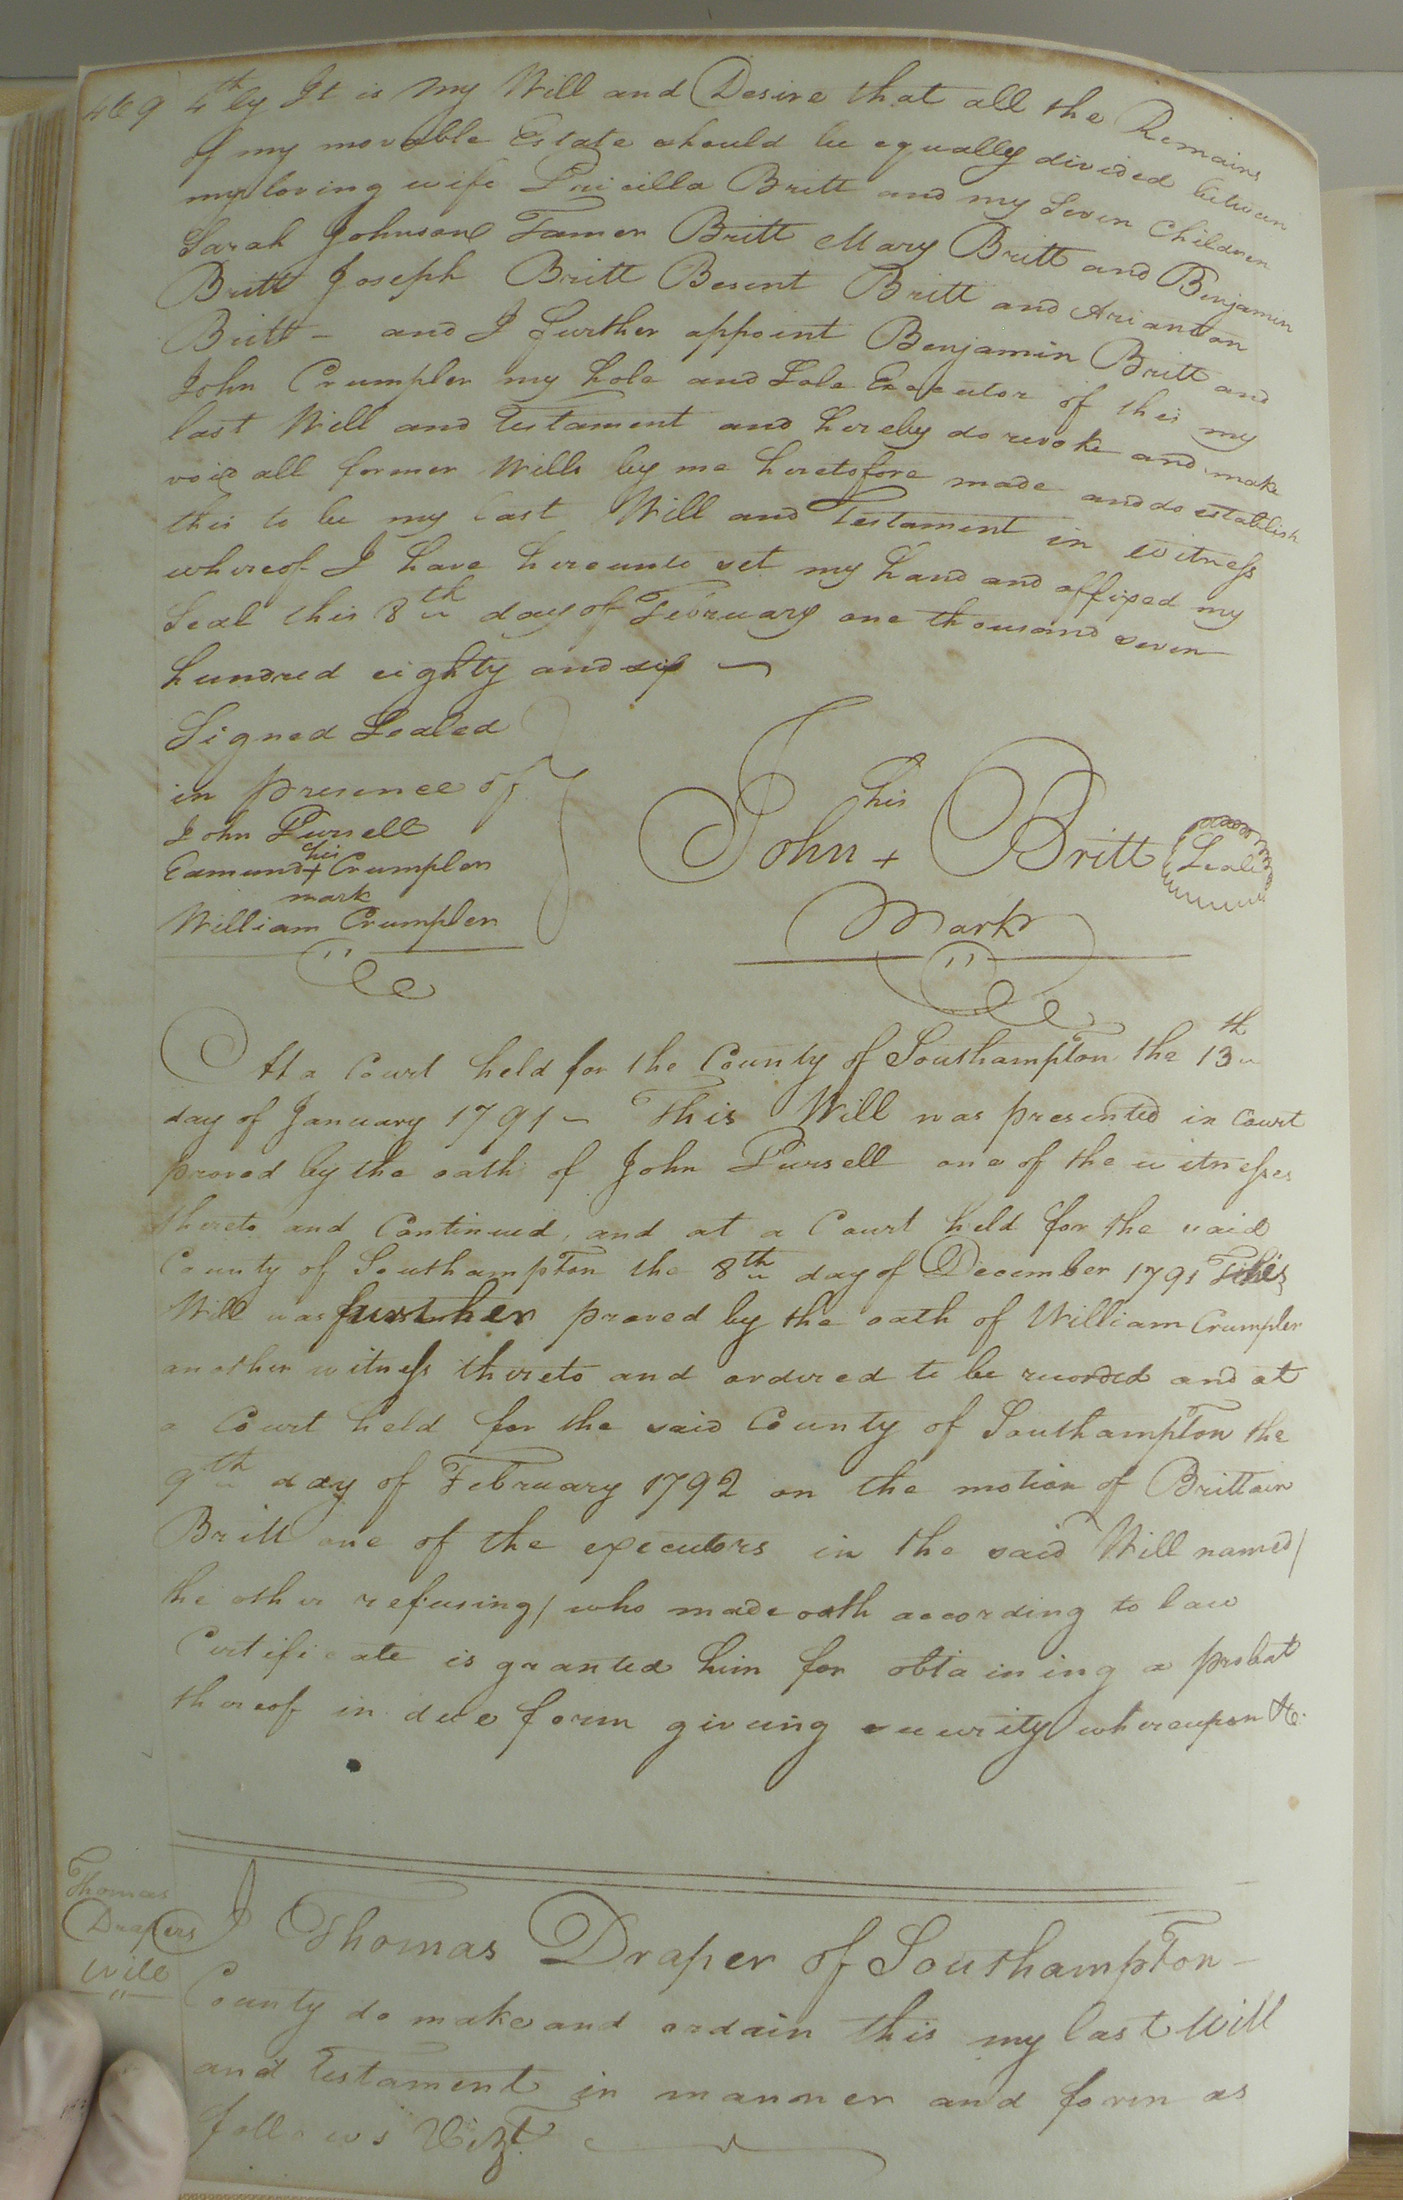 469 4thly It is my Will and Desire that all the Remains
of my movable Estate should be equally divided between
my loving wife Pricilla Britt and my Seven Children
Sarah Johnson Tamer Britt Mary Britt and Benjamin
Britt Joseph Britt Besent Britt and
Britt – and I further appoint Benjamin Britt and
John Crumpler my hole and Sole Executor of this my
last Will and Testament and hereby do revoke and make
void all former Wills by me heretofore made and do establish
this to be my last Will and Testament in witness
whereof I have hereunto set my hand and affixed my
Seal this 8th day of February one thousand seven
hundred eighty and six –
Signed Sealed
in presence of
John Pursell
his
Edmund + Crumpler
mark
William Crumpler
his
John + Britt Seal
Mark
At a Court held for the County of Southampton the 13th
day of January 1791 – This Will was presented in Court
proved by the oath of John Pursell one of the witnesses
thereto and Continued, and at a Court held for the said
County of Southampton the 8th day of December 1791 This
Will was further proved by the oath of William Crumpler
another witness thereto and ordered to be recorded and at
a Court held for the said County of Southampton the
9th day of February 1792 on the motion of Brittain
Britt one of the executors in the said Will named/
the other refusing/ who made oath according to law
Certificate is granted him for obtaining a probat
thereof in due form giving security whereupon &c.
Thomas
Drapers
Will
I Thomas Draper of Southampton –
County do make and ordain this my last Will
and Testament in manner and form as
follows Vizt.